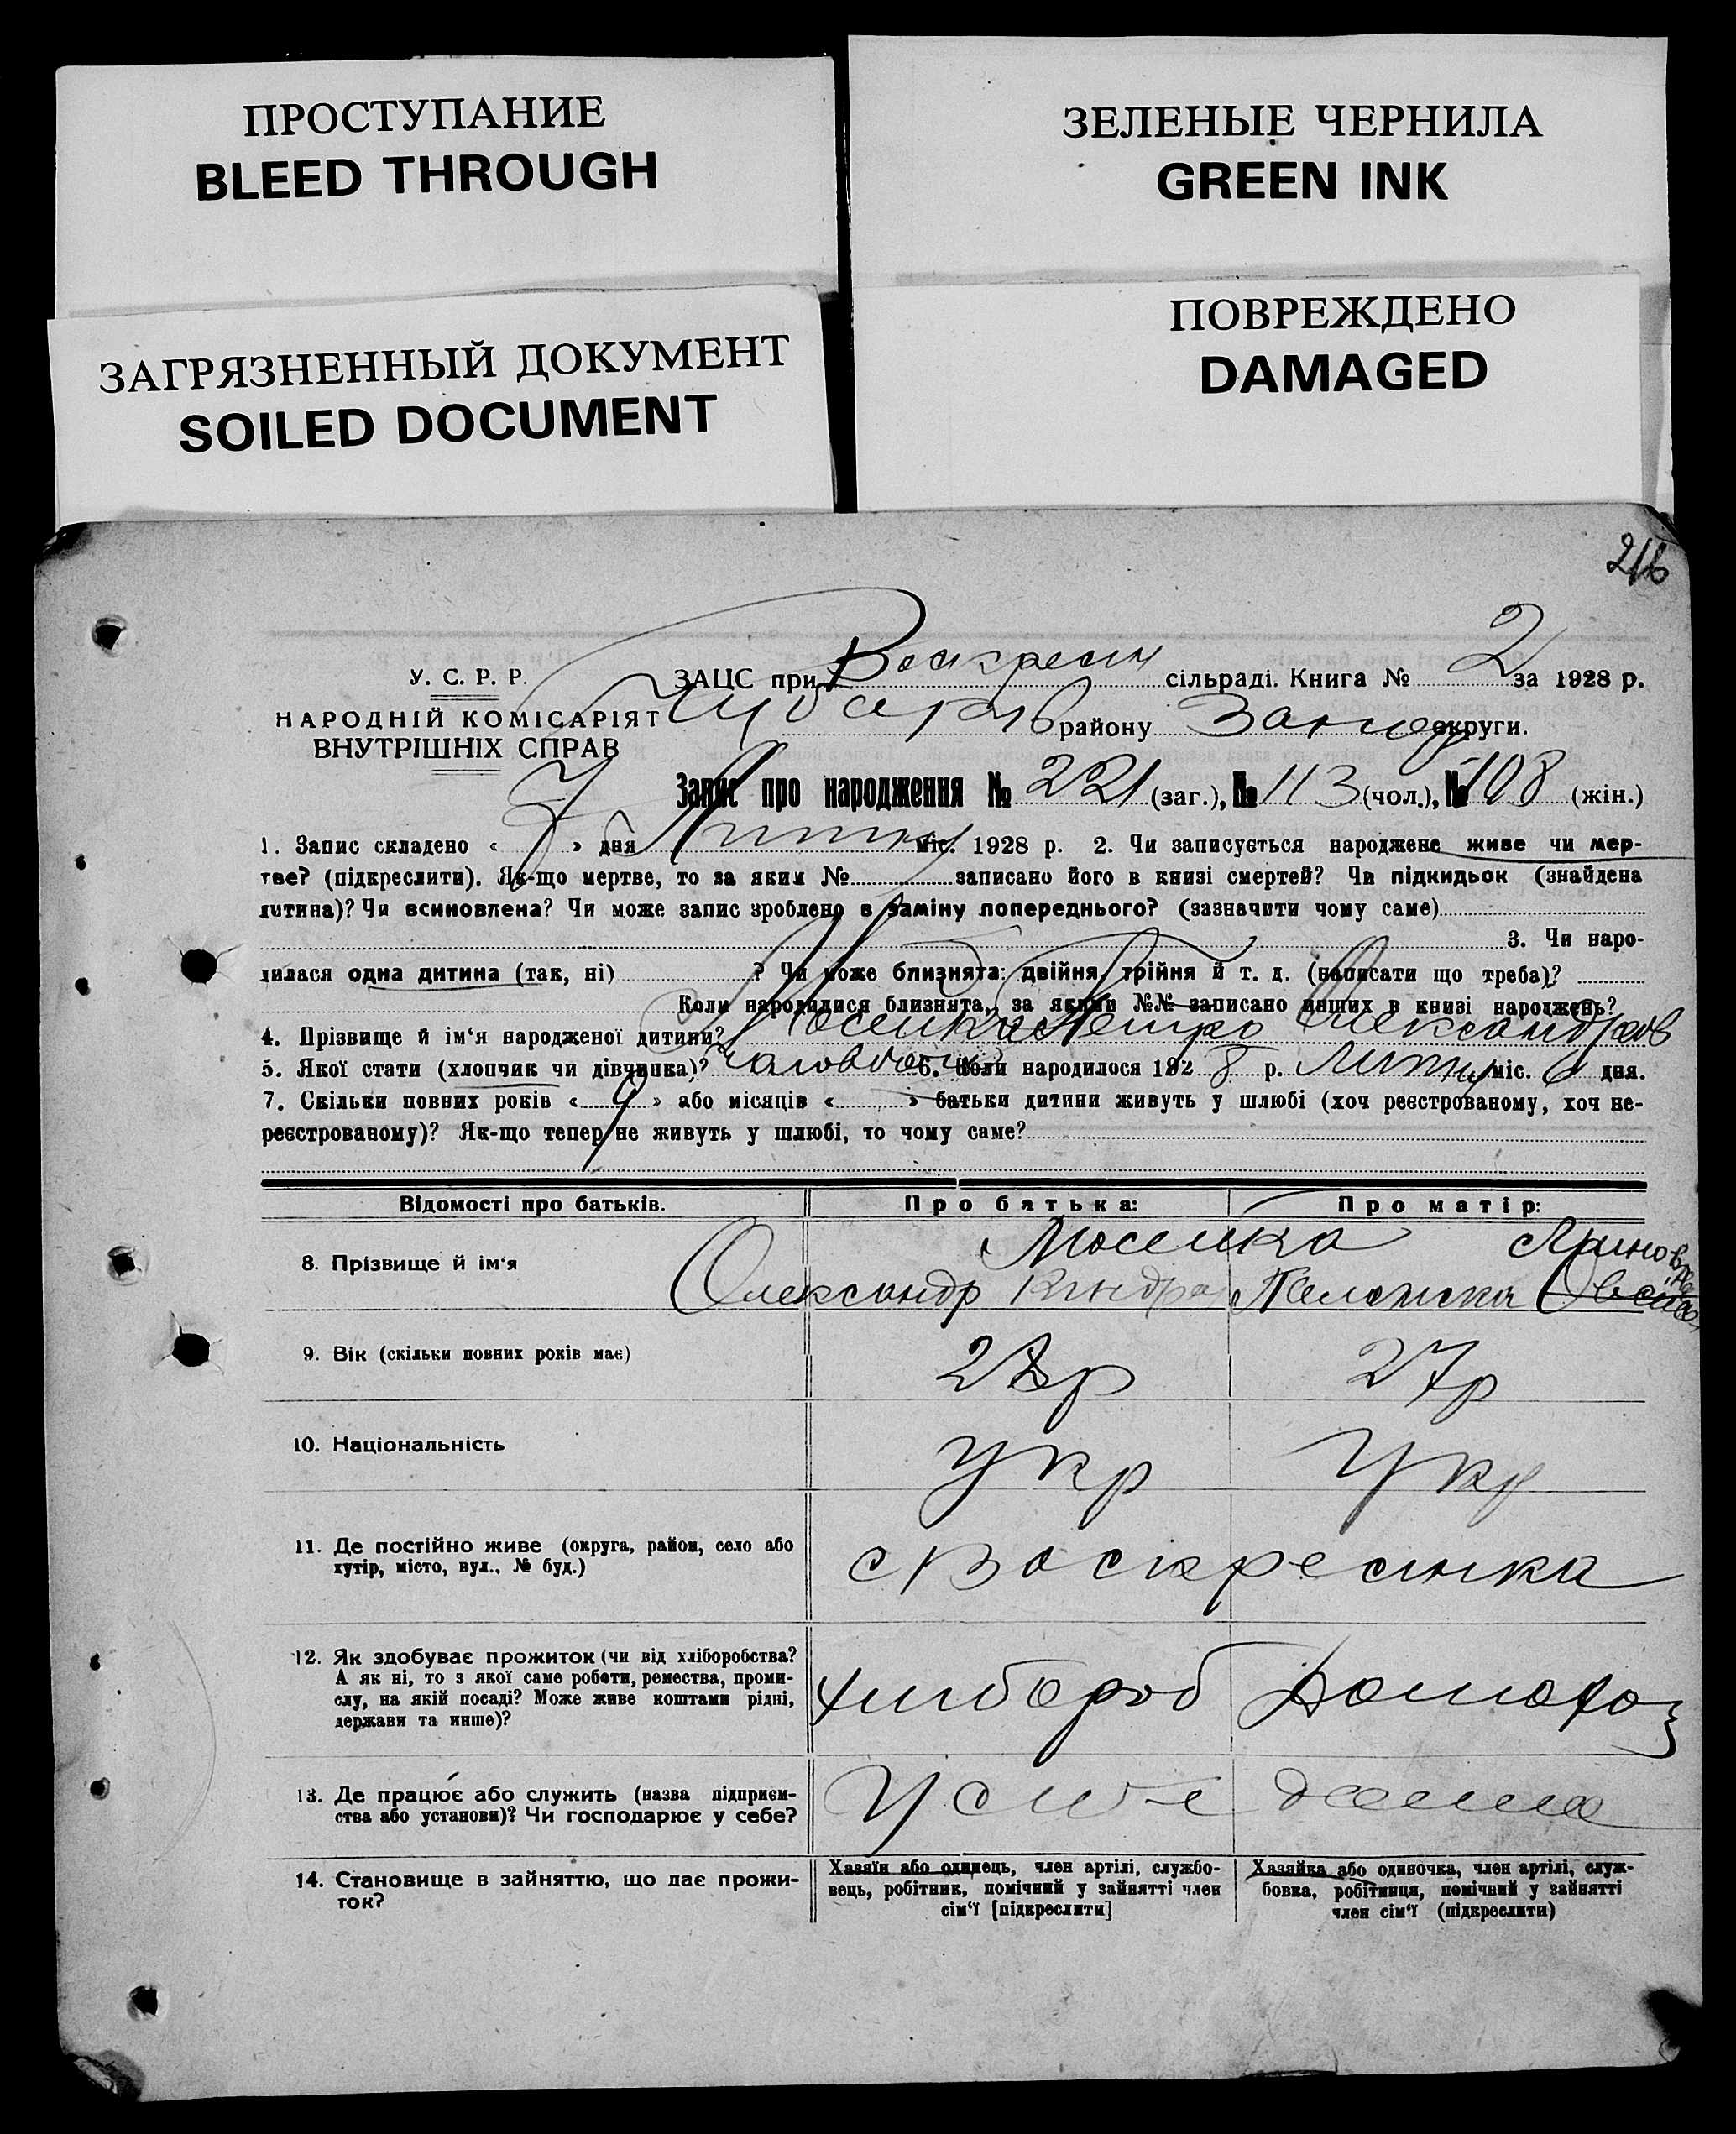 ПРОСТУПАНИЕ
BLEED THROUGH
ЗЕЛЕНЫЕ ЧЕРНИЛА
GREEN INK
ЗАГРЯЗНЕННЫЙ ДОКУМЕНТ
SOILED DOCUMENT
ПОВРЕЖДЕНО
DAMAGED
216
У. С. Р. Р.
НАРОДНІЙ КОМІСАРІЯТ
ВНУТРІШНІХ СПРАВ
ЗАЦС при Воскресен сільраді. Книга № 2 за 1928 р.
Чубарів району Запор округи.
Запис про народження № 221 (заг.), № 113 (чол.), № 108 (жін.)
1. Запис складено « 7 » дня Липня міс. 1928 р. 2. Чи записується народжене живе чи мер-
тве? (підкреслити). Як-що мертве, то за яким № записано його в книзі смертей? Чи підкидьок (знайдена
дитина)? Чи всиновлена? Чи може запис зроблено в заміну попереднього? (зазначити чому саме)
3. Чи наро-
дилася одна дитина (так, ні) ? Чи може близнята: двійня, трійня й т. д. (написати що треба)?
Коли народилися близнята, за якими №№ записано инших в книзі народжень?
4. Прізвище й ім'я народженої дитини? Мосейка Петро Олександров
5. Якої стати (хлопчик чи дівчинка)? чоловіча 6. Коли народилося 1928 р. Липня міс. 6 дня.
7. Скільки повних років « 9 » або місяців « » батьки дитини живуть у шлюбі (хоч реєстрованому, хоч не-
реєстрованому)? Як-що тепер не живуть у шлюбі, то чому саме?
Відомості про батьків. Про батька: Про матір:
8. Прізвище й ім'я Мосейка
Олександр Кіндра Пелажка
9. Вік (скільки повних років має) 28р 27р
10. Національність Укр Укр
11. Де постійно живе (округа, район, село або
хутір, місто, вул., № буд.)
с Воскресенка
12. Як здобуває прожиток (чи від хліборобства?
А як ні, то з якої саме роботи, ремества, проми-
слу, на якій посаді? Може живе коштами рідні,
держави та инше)?
хлибороб Домохоз
13. Де працює або служить (назва підприєм-
ства або установи)? Чи господарює у себе?
У себе дома
14. Становище в зайняттю, що дає прожи-
ток?
Хазяїн або одинець, член артілі, службо-
вець, робітник, помічний у зайнятті член
сім'ї [підкреслити]
Хазяйка або одиночка, член артілі, служ-
бовка, робітниця, помічний у зайнятті
член сім'ї (підкреслити)